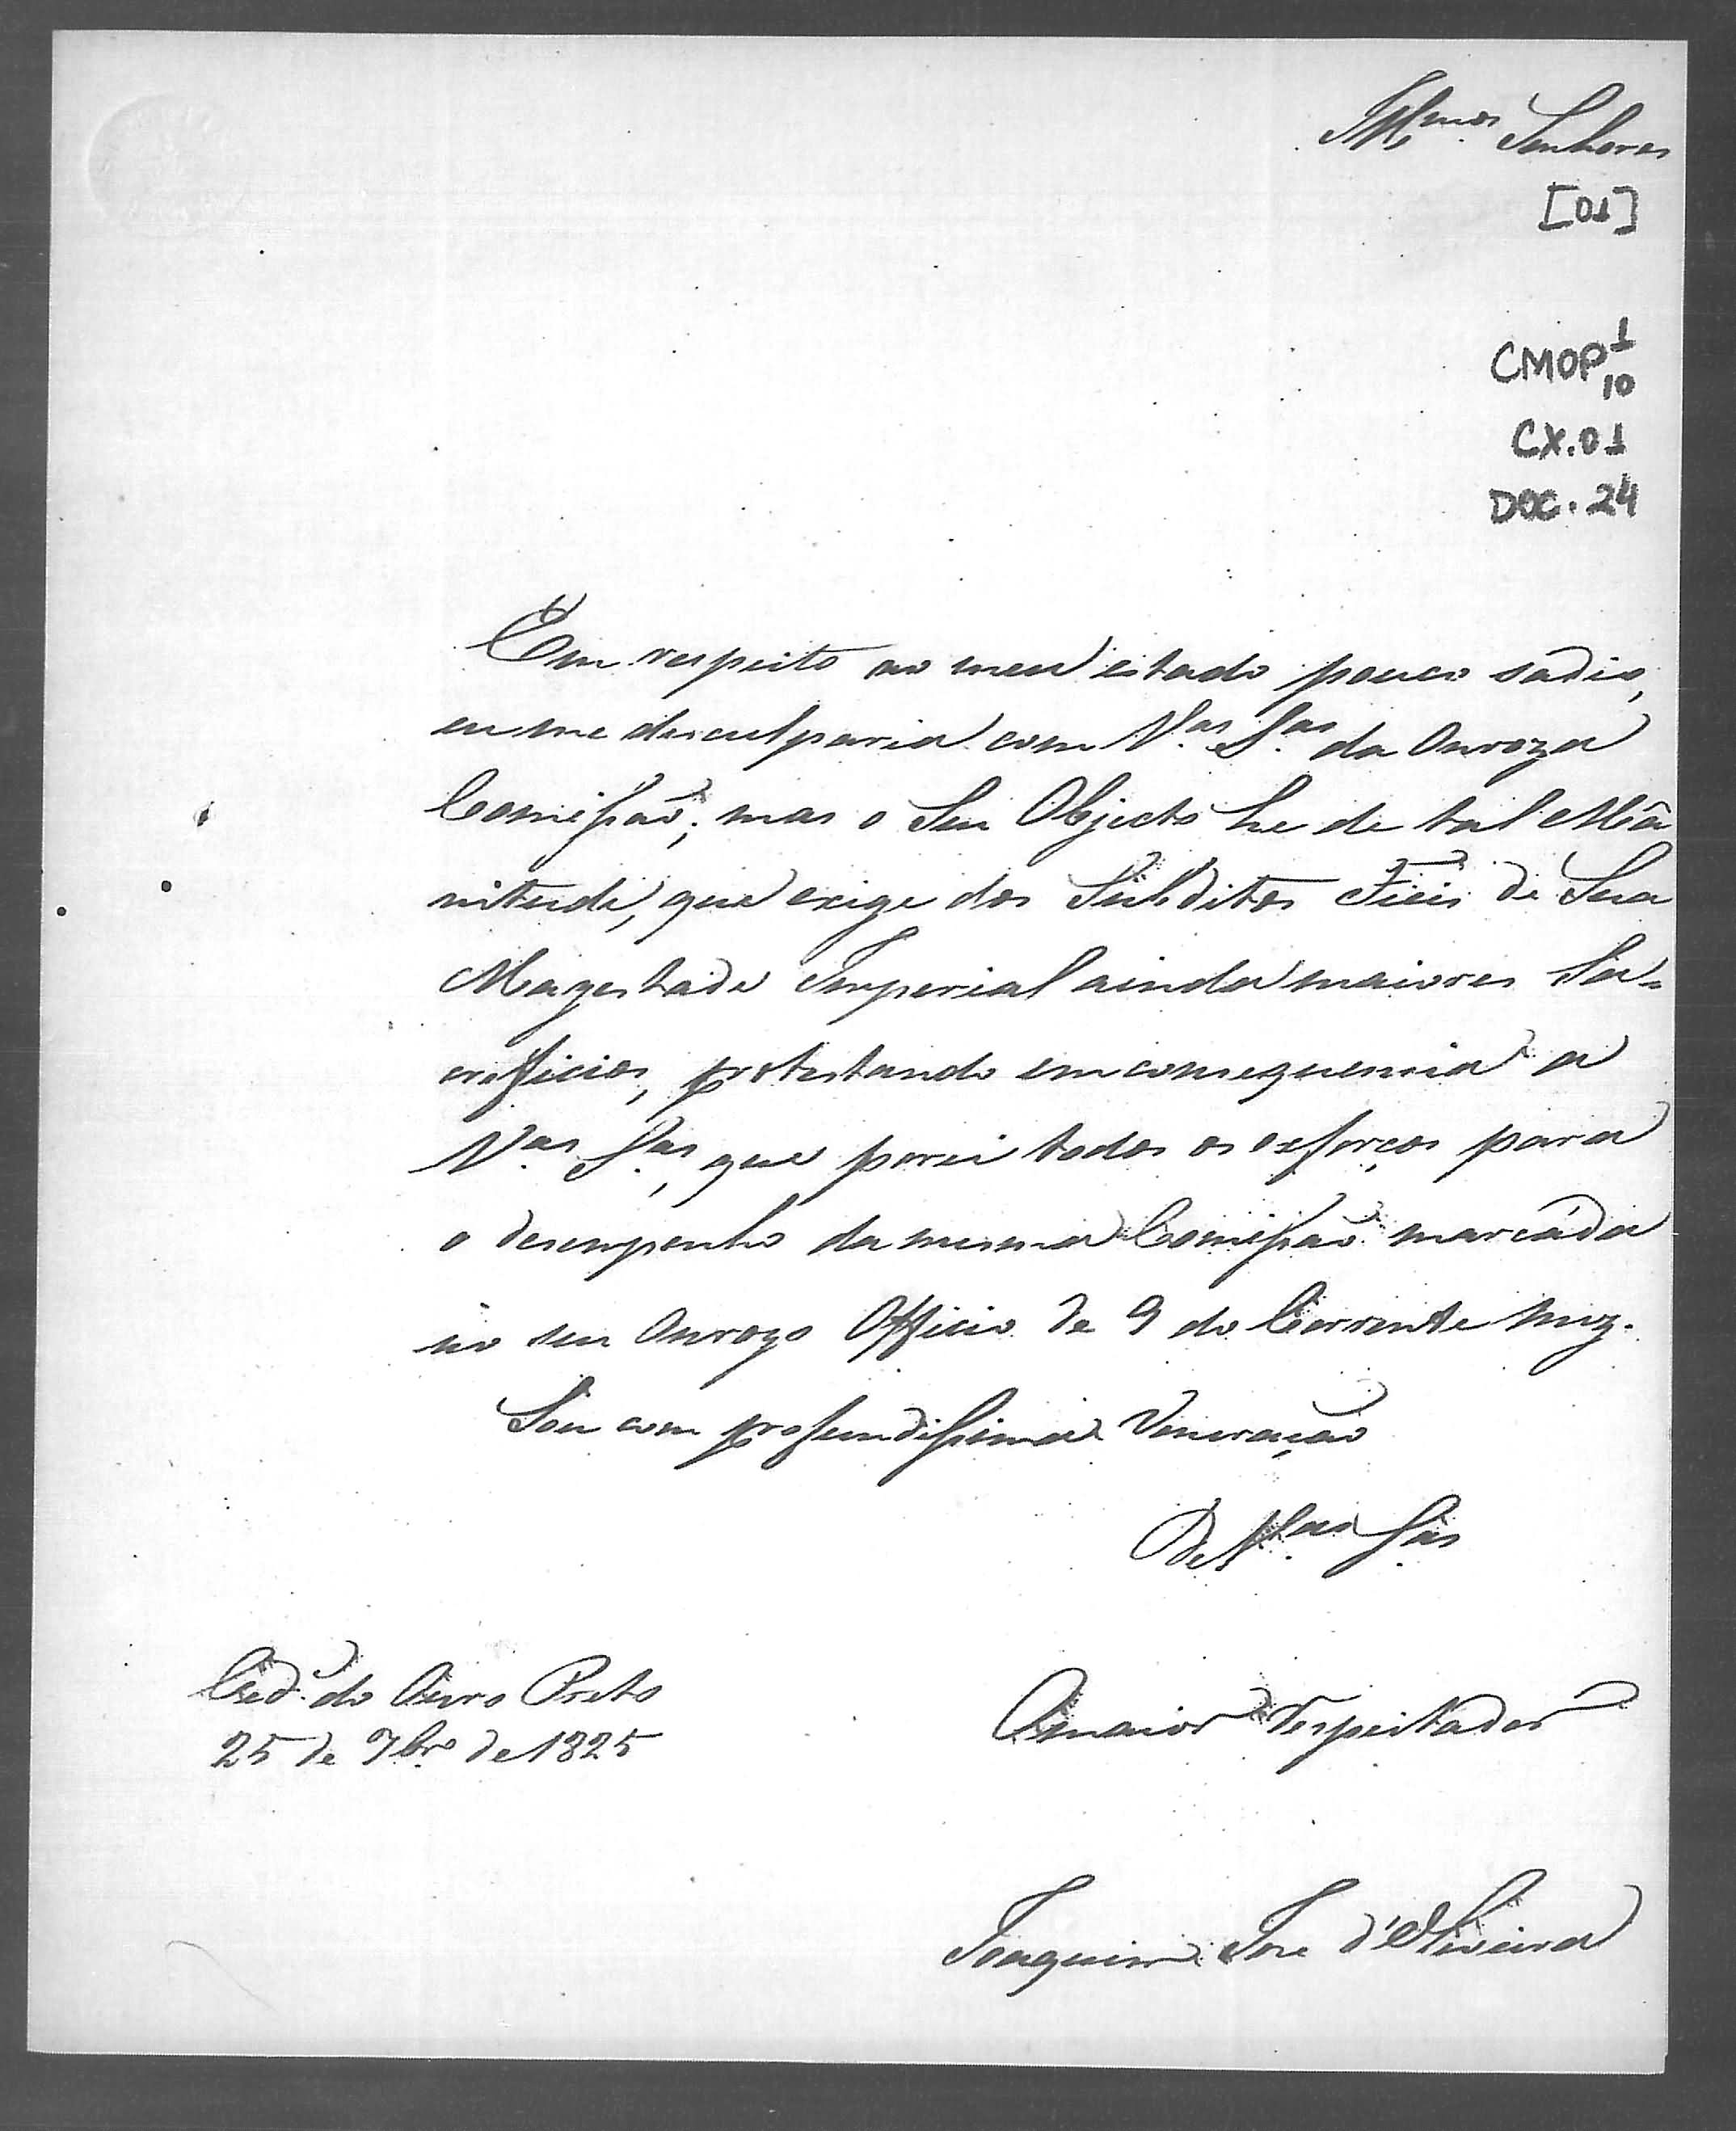 Illmos. Senhores
[01]
CMOP 1/10
CX.01
DOC. 24
Em respeito ao meu estado pouco sadio,
eu me desculparia com V.as S.as da Onroza
Comissaõ; mas o Seu Objecto he de tal Mâ
nitude, que exige dos Subditos Fieis de Sua
Magestade Imperial ainda maiores Sa=
crificios, protestando em consequencia a
V.as S.as, que porei todos os esforços para
o desempenho da mesma Comissaõ marcáda
no seu Onrozo Officio de 9 do Corrente mez.
Sou com profundissima Veneraçaõ
De V.as S.as
Cid.e do Ouro Preto
25 de 7br.o de 1825
O maior respeitador
Joaquim Joze d'Oliveira